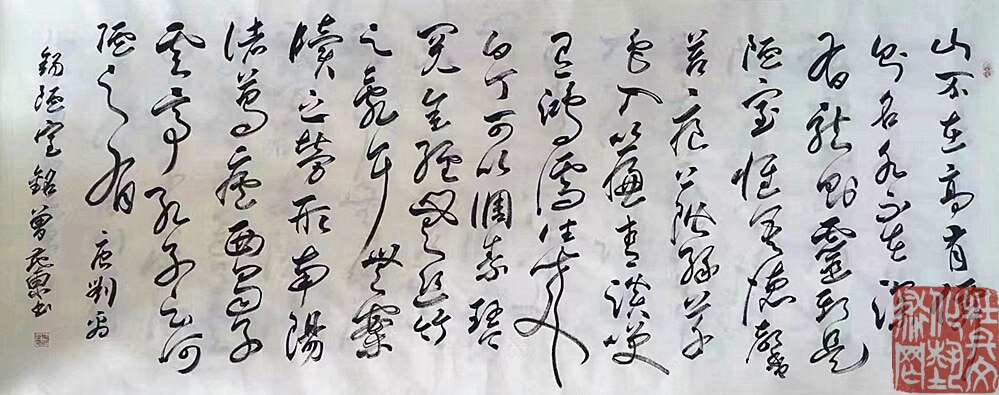 山不在高有仙
则名水不在深
有龙则靈斯是
陋室惟吾德馨
苔痕上階绿草
色入簾青谈笑
有鸿儒往来无
白丁可以调素琴
阅金经無丝竹
之亂耳無案
牘之劳形南陽
诸葛庐西蜀子
云亭孔子云何
陋之有 唐刘禹
錫陋室銘